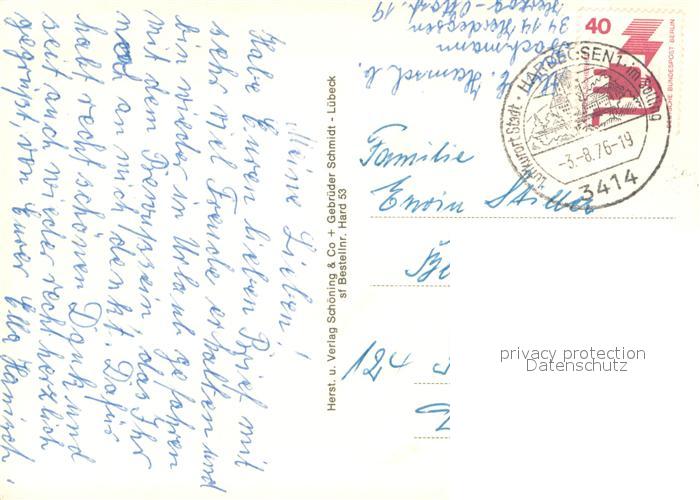 Meine Lieben!
Habe Euren lieben Brief mit
sehr viel Freude erhalten und
bin wieder in Urlaub gefahren
mit dem Bewußsein das Ihr
noch an mich denkt. Dafür
habt recht schönen Dank und
seit auch wieder recht herzlich
gegrüßt von Eurer Ella Hanisch.
Herst. u. Verlag Schöning & Co + Gebrüder Schmidt - Lübeck
sf Bestellnr. Hard 53
E. Hanisch b.
Jochmann
3414 Hardegsen
Herzog-Otto-st. 19
40
DEUTSCHE BUNDESPOST BERLIN
HARDEGSEN 1 · im Solling
Luftkurort Stadt
-3.-8.76-19
3414
Familie
Erwin Stiller
Be
124
privacy protection
Datenschutz